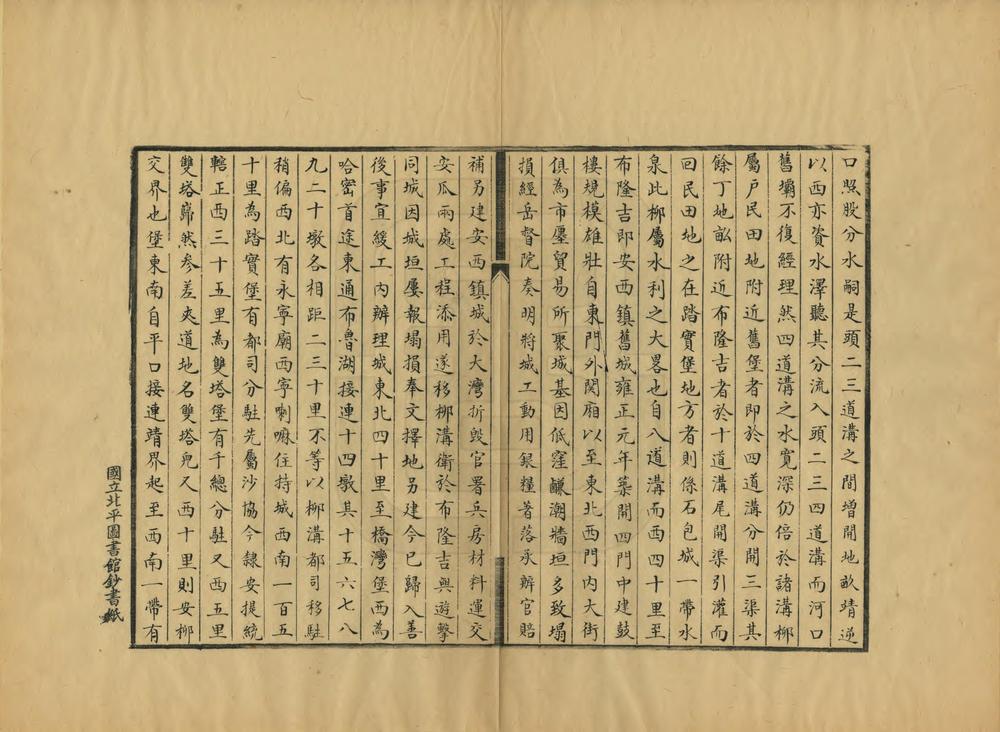 口照股分水嗣是頭二三道溝之間增開地畝靖逆
以西亦資水澤聽其分流入頭二三四道溝而河口
舊壩不復經理然四道溝之水寬深仍倍於諸溝柳
屬戶民田地附近舊堡者即於四道溝分開三渠其
餘丁地畝附近布隆吉者於十道溝尾開渠引灌而
回民田地之在踏實堡地方者則係石包城一帶水
泉此柳屬水利之大畧也自八道溝而西四十里至
布隆吉即安西鎮舊城雍正元年築開四門中建鼓
樓規模雄壯自東門外関廂以至東北西門內大街
俱為市廛貿易所聚城基因低窪鹻潮牆垣多致塌
損經岳督院奏明將城工動用銀糧著落承辦官賠
補另建安西鎮城於大灣折毀官署兵房材料運交
安瓜兩處工程添用遂移柳溝衛於布隆吉與遊擊
同城因城垣屢報塌損奉文擇地另建今已歸入善
後事宜緩工內辦理城東北四十里至橋灣堡西為
哈密首途東通布魯湖接連十四墩其十五六七八
九二十墩各相距二三十里不等以柳溝都司移駐
稍偏西北有永寧廟西寧喇嘛住持城西南一百五
十里為踏實堡有都司分駐先屬沙協今隸安提統
轄正西三十五里為雙塔堡有千總分駐又西五里
雙塔巋然參差夾道地名雙塔兒又西十里則安柳
交界也堡東南自平口接連靖界起至西南一帶有
國立北平圖書館鈔書紙